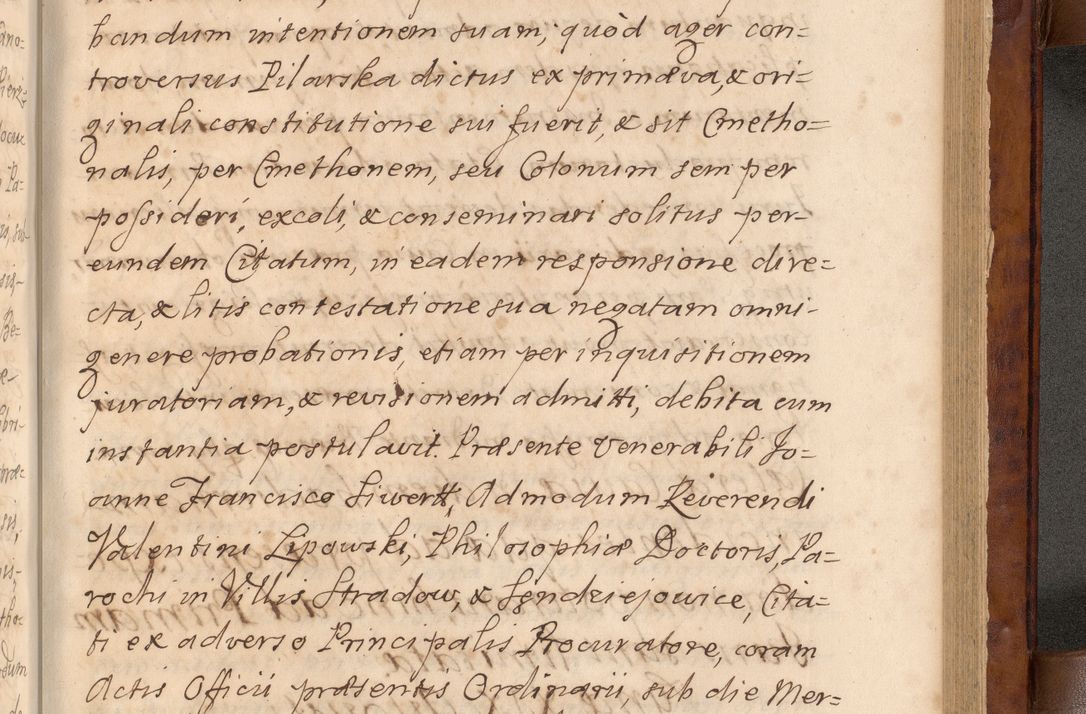 bandum intentionem suam, quòd ager con=
troversus Pilarska dictus ex primæva, & ori=
ginali constitutione sui fuerit, & sit Cmetho=
nalis, per Cmethonem, seu Colonum semper
possideri, excoli, & conseminari solitus per-
eundem Citatum, in eadem responsione dire=
cta, & litis contestatione sua negatam omni-
genere probationis, etiam per inquisitionem
juratoriam, & revisionem admitti, debita cum
instantia postulavit. Præsente Venerabili Jo=
anne Francisco Siwertt, Admodum Reverendi
Valentini Lipowski, Philosophiæ Doctoris, Pa=
rochi in Villis Stradow, & Sęndziejowice, Cita=
ti ex adverso Principalis Procuratore, coram
Actis Officii præsentis Ordinarii, sub die Mer=